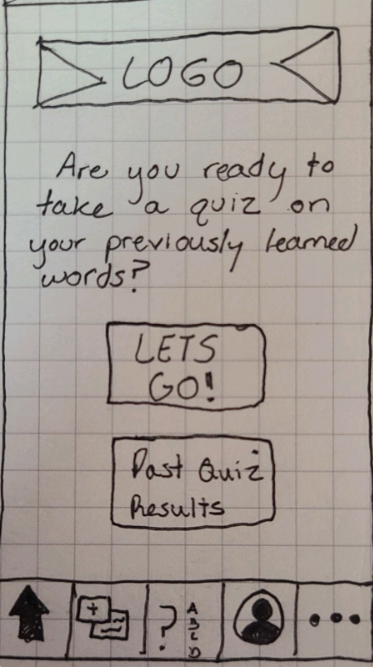 LOGO
Are you ready to
take a quiz on
your previously learned
words?
LETS
GO!
Past Quiz
Results
+
? A
B
C
D